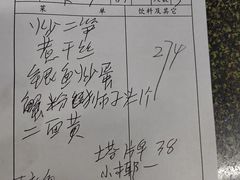 菜 单 饮料及其它
炒二笋
煮干丝
银鱼炒蛋 274
蟹粉狮子头1个
二面黄
塔牌 38
小椰一